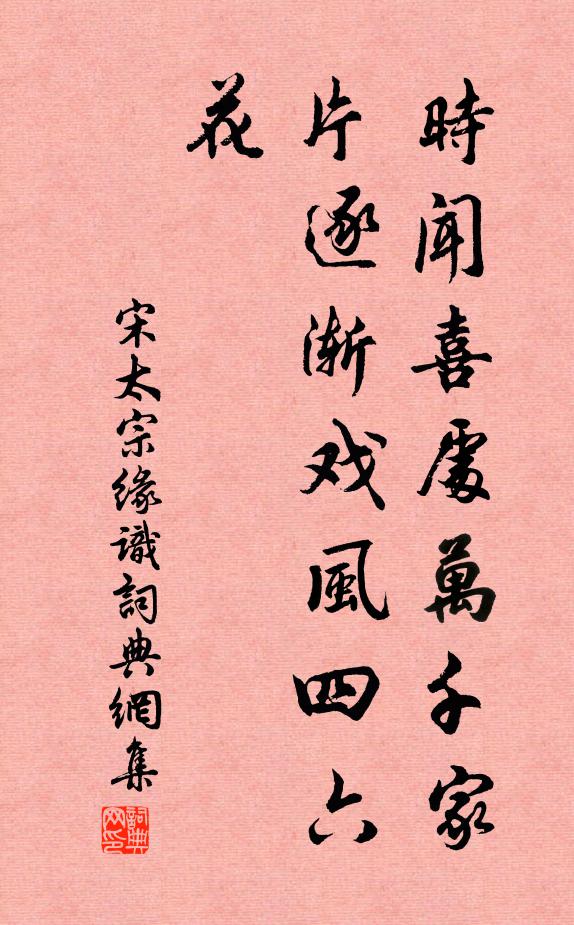 時聞喜處萬千家
片逐漸戏風四六
花
宋太宗緣識詞典網集
詞典网印